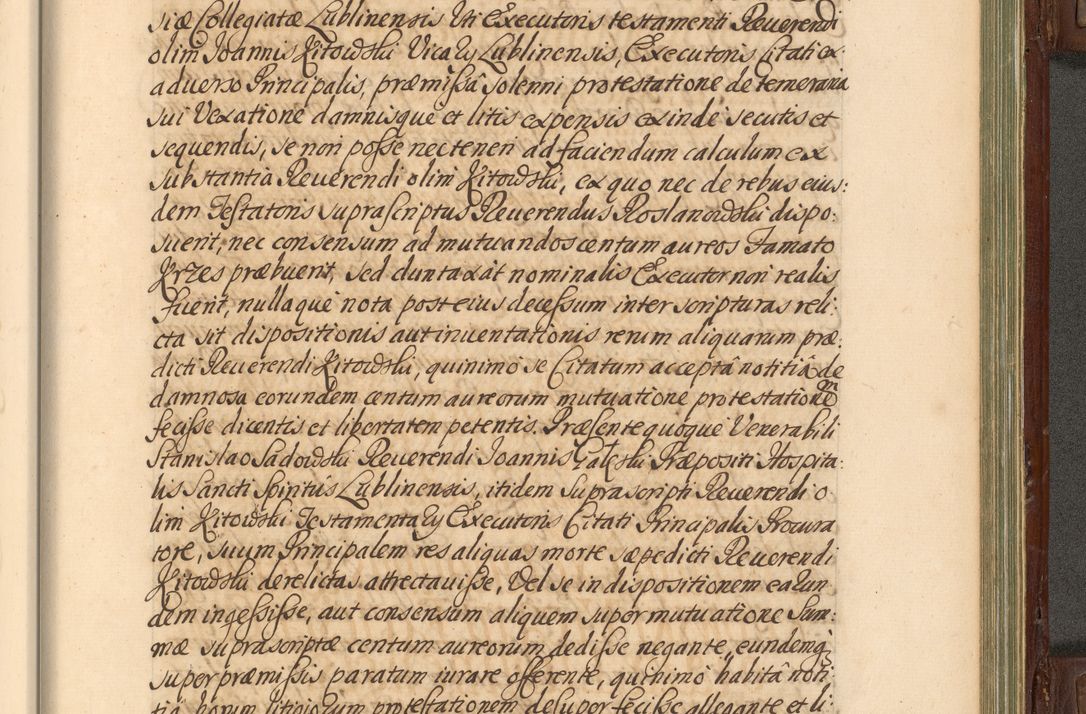 siæ Collegiatæ Lublinensis Uti Executoris testamenti Reuerendi
olim Joannis Kitowski Vicarÿ Lublinensis, Executoris Citati ex
aduerso Principalis, præmissâ solenni protestatione de temeraria
sui Vexatione damnisque et litis expensis exinde secutis et
sequendis, se non posse nec teneri ad faciendum calculum ex
substantia Reuerendi olim Kitowski, ex quo nec de rebus eius:
dem Testatoris suprascriptus Reuerendus Roslanowski dispo:
suerit, nec consensum ad mutuandos centum aureos Famato
Krzes præbuerit, sed duntaxat nominalis Executor non realis
fuerit, nullaque nota post eius decessum inter scripturas reli:
cta sit dispositionis aut inuentationis rerum aliquarum præ:
dicti Reuerendi Kitowski, quinimo se Citatum acceptâ notitiâ de
damnosa eorundem centum aureorum mutuatione protestationem
fecisse dicentis et libertatem petentis. Præsente quoque Venerabili
Stanislao Sadowski Reuerendi Joannis Galeski Præpositi Hospita:
lis Sancti Spiritûs Lublinensis, itidem suprascripti Reuerendi o
lim Kitowski Testamentarÿ Executoris Citati Principalis Procura
tore, suum Principalem res aliquas morte sæpedicti Reuerendi
Kitowski derelictas attrectauisse, Vel se in dispositionem earun
dem ingessisse, aut consensum aliquem super mutuatione Sum:
mæ suprascriptæ centum aureorum dedisse negante, eundemq
super præmissis paratum iurare offerente, quinimo habitâ noti
tiâ horum litigiorum protestationem desuper fecisse allegante et li: